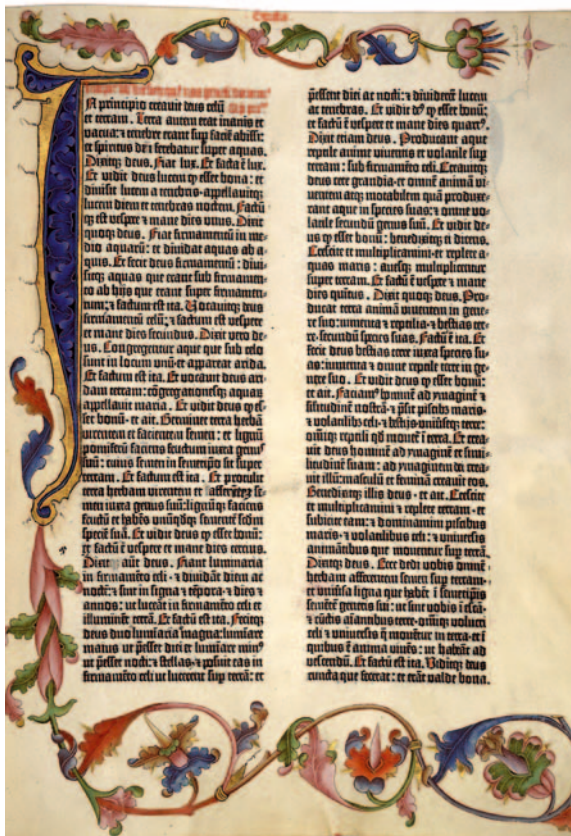 N principio creauit deus celū
et terram. Terra autem erat inanis et
vacua: et tenebre erant sup faciē abissi:
et spiritus dñi ferebatur super aquas.
Dixitq; deus. Fiat lux. Et facta ē lux.
Et vidit deus lucem q esset bona: et
diuisit lucem a tenebris · appellauitq;
lucem diem et tenebras noctem. Factūq;
est vespere ⁊ mane dies unus. Dixit
quoq; deus. Fiat firmamentū in me-
dio aquarū: et diuidat aquas ab a-
quis. Et fecit deus firmamentū: diui-
sitq; aquas que erant sub firmamen-
to ab hijs que erant super firmamen-
tum: ⁊ factum est ita. Vocauitq; deus
firmamentū celū: ⁊ factum est vespere
et mane dies secundus. Dixit vero de-
us. Congregentur aque que sub celo
sunt in locum unū et appareat arida.
Et factum est ita. Et vocauit deus ari-
dam terram: cōgregationesq; aquaꝝ
appellauit maria. Et vidit deus q es-
set bonū · et ait. Germinet terra herbā
virentem et facientem semen: et lignū
pomiferū faciens fructum iuxta genus
suū: cuius semen in semetipo sit super
terram. Et factum est ita. Et protulit
terra herbam virentem et afferētem se-
men iuxta genus suū: lignūq; faciens
fructū et habēs unūqdq; sementē scdm
speciē suā. Et vidit deus q esset bonū:
et factū ē vespere et mane dies tercius.
Dixit autē deus. Fiant luminaria
in firmamēto celi · ⁊ diuidāt diem ac
noctē: ⁊ sint in signa ⁊ tēpora · ⁊ dies ⁊
annos: ut luceāt in firmamēto celi et
illuminēt terrā. Et factū est ita. Fecitq;
deus duo luminaria magna: lumīare
maius ut p̄esset diei et lumīare minꝰ
ut p̄esset nocti: ⁊ stellas · ⁊ posuit eas in
firmamēto celi ut lucerent sup terrā: et
p̄essent diei ac nocti: ⁊ diuiderēt lucem
ac tenebras. Et vidit deꝰ q esset bonū:
et factū ē vespere et mane dies quartꝰ.
Dixit etiam deus. Producant aque
reptile anime viuentis et volatile sup
terram: sub firmamēto celi. Creauitq;
deus cete grandia · et omnē animā vi-
uentem atq; motabilem quā produxe-
rant aque in species suas: ⁊ omne vo-
latile secundū genus suū. Et vidit de-
us q esset bonū: benedixitq; ei dicens.
Crescite et multiplicamini · et replete a-
quas maris: auesq; multiplicentur
super terram. Et factū ē vespere ⁊ mane
dies quītus. Dixit quoq; deus. Pro-
ducat terra animā viuentem in gene-
re suo: iumenta ⁊ reptilia · ⁊ bestias ter-
re secundū species suas. Factū ē ita. Et
fecit deus bestias terre iuxta species su-
as: iumenta ⁊ omne reptile terre in ge-
nere suo. Et vidit deus q esset bonū:
et ait. Faciamꝰ hominē ad ymaginē ⁊
silitudinē nostrā · ⁊ p̄sit piscibꝫ maris ·
et volatilibꝫ celi · ⁊ bestijs uniūseq; terre:
omīq; reptili qd mouet ī terra. Et crea-
uit deus hominē ad ymaginē et simi-
litudinē suam: ad ymaginem dei crea-
uit illū: masculū et feminā creauit eos.
Benedixitq; illis deus · et ait. Crescite
et multiplicamini ⁊ replete terram · et
subicite eam: ⁊ dominamini piscibus
maris · ⁊ volatilibus celi: ⁊ uniuersis
animātibus que mouentur sup terrā.
Dixitq; deus. Ecce dedi vobis omnē
herbam afferentem semen sup terram ·
et vniūsa ligna que habēt ī semetipis
semētē generis sui: ut sint vobis ī escā ·
⁊ cūctis aīantibus terre · omīq; volucri
celi ⁊ uniuersis q mouētur in terra · et ī
quibus ē anima viuēs: ut habeāt ad
vescendū. Et factū est ita. Viditq; deus
cuncta que fecerat: et erāt valde bona.